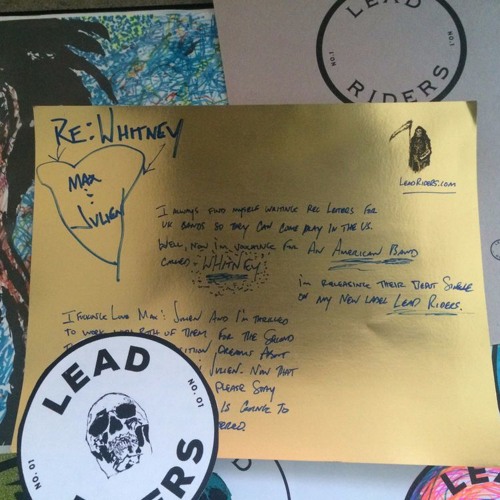 LEAD
RIDERS
NO.1
NO.1
RE: WHITNEY
MAX
:
JULIEN
LEADRIDERS.COM
I ALWAYS FIND MYSELF WRITING REC LETTERS FOR
UK BANDS SO THEY CAN COME PLAY IN THE US.
WELL, NOW I'M WRITING FOR AN AMERICAN BAND
CALLED - WHITNEY.
I'M RELEASING THEIR DEBUT SINGLE
ON MY NEW LABEL LEAD RIDERS.
LOVE MAX : JULIEN AND I'M THRILLED
TO WORK WITH BOTH OF THEM FOR THE SECOND
DREAMS ABOUT
JULIEN. NOW THAT
PLEASE STAY
IS GOING TO
LEAD
RIDERS
NO.01
NO.01